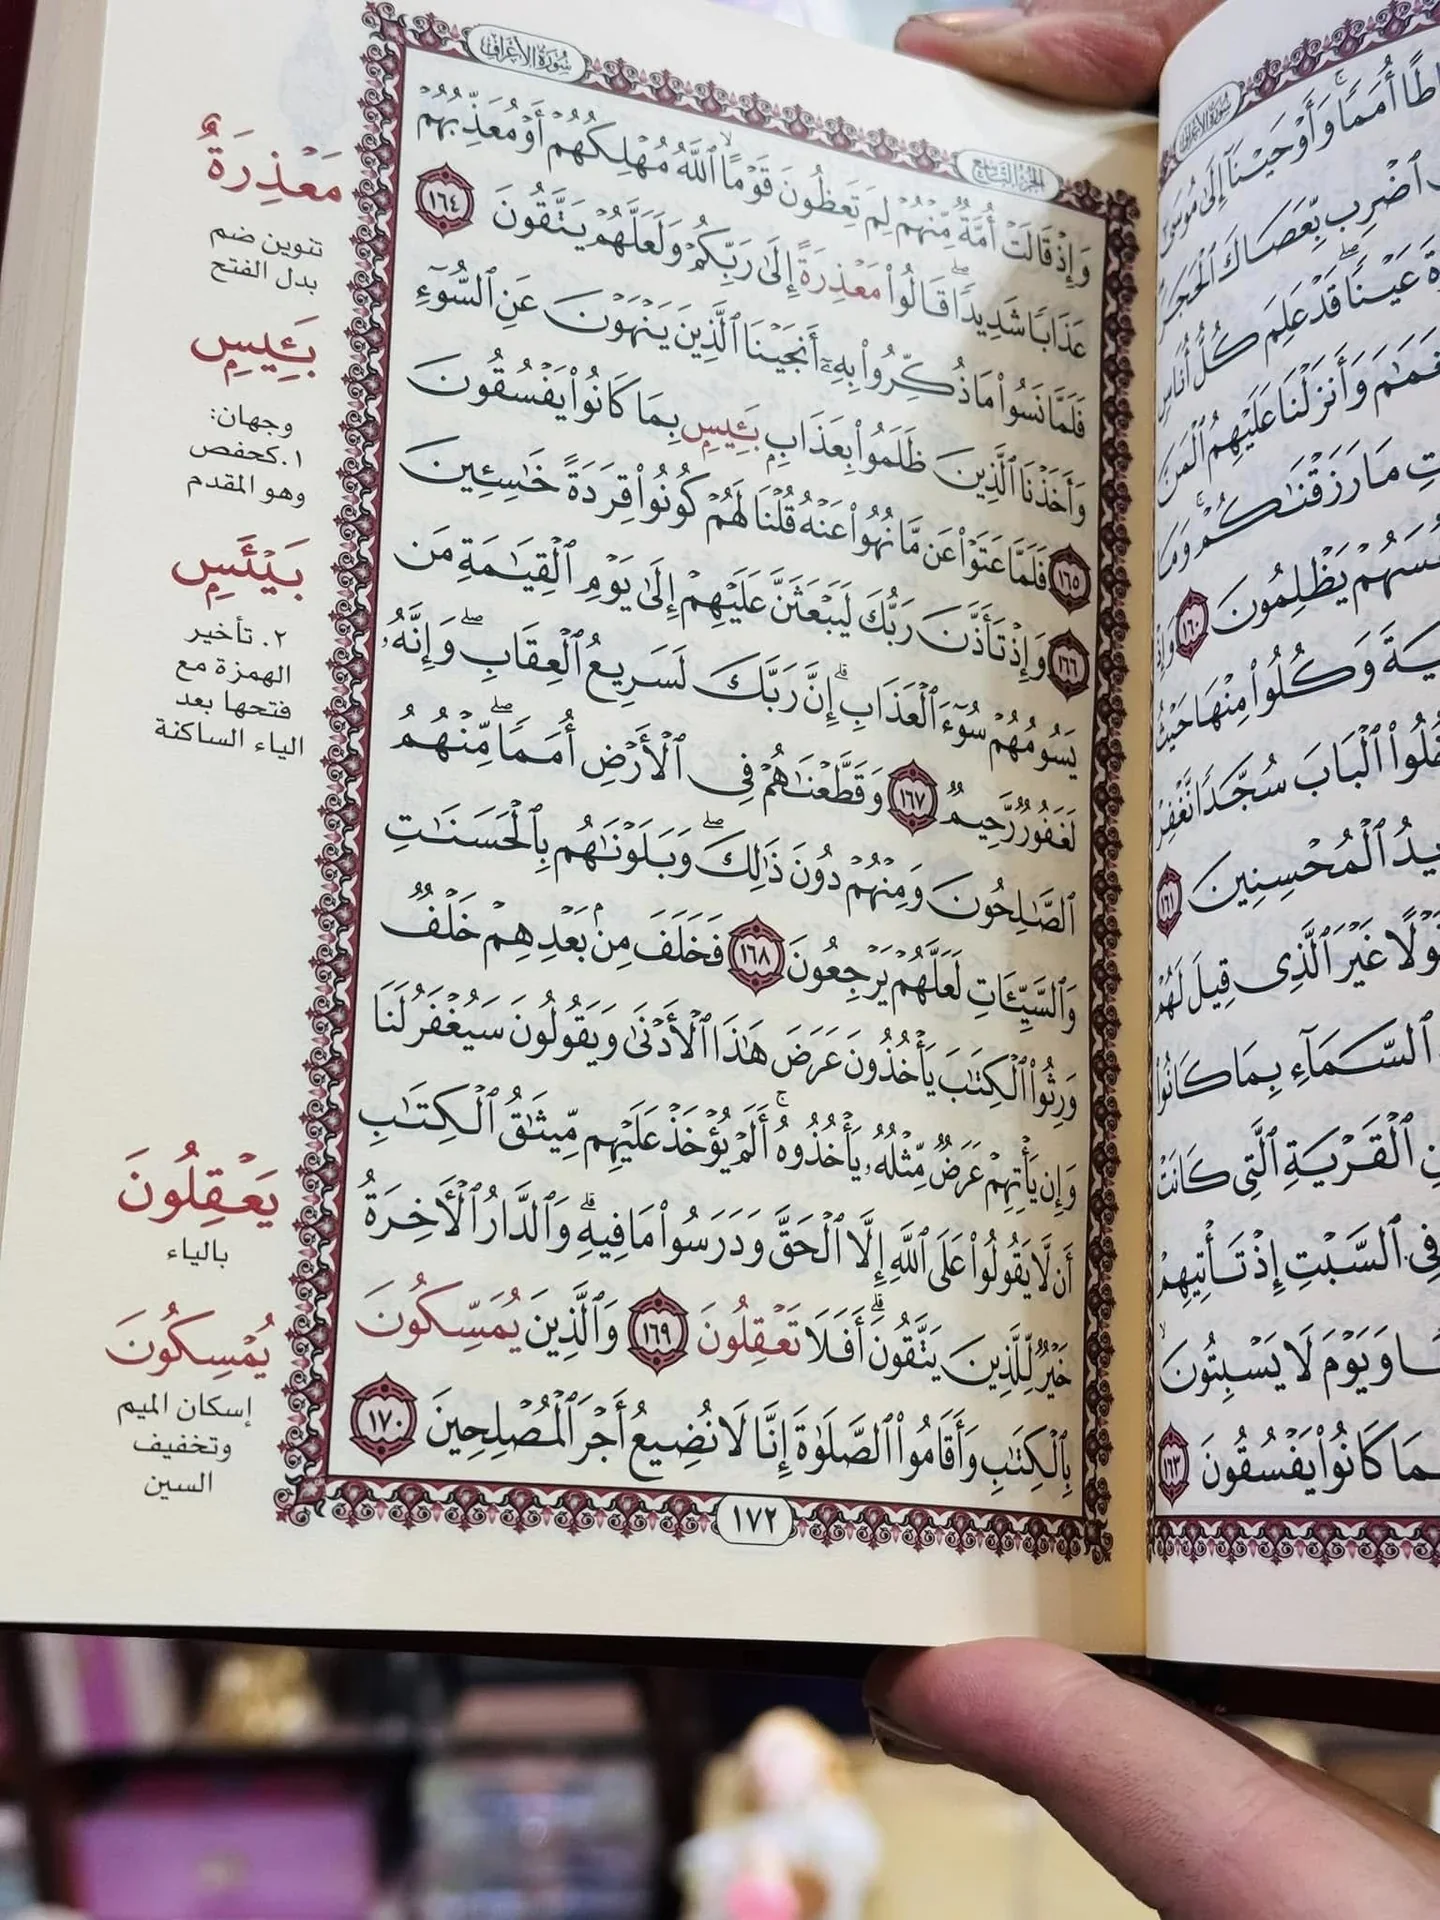 سُورَةُ الأَعْرَافِ
الجُزْءُ التَّاسِعُ
وَإِذْ قَالَتْ أُمَّةٌ مِّنْهُمْ لِمَ تَعِظُونَ قَوْمًا ۙ ٱللَّهُ مُهْلِكُهُمْ أَوْ مُعَذِّبُهُمْ
عَذَابًا شَدِيدًا ۖ قَالُوا۟ مَعْذِرَةً إِلَىٰ رَبِّكُمْ وَلَعَلَّهُمْ يَتَّقُونَ ١٦٤
فَلَمَّا نَسُوا۟ مَا ذُكِّرُوا۟ بِهِۦٓ أَنجَيْنَا ٱلَّذِينَ يَنْهَوْنَ عَنِ ٱلسُّوٓءِ
وَأَخَذْنَا ٱلَّذِينَ ظَلَمُوا۟ بِعَذَابٍۭ بَـِٔيسٍۭ بِمَا كَانُوا۟ يَفْسُقُونَ
١٦٥ فَلَمَّا عَتَوْا۟ عَن مَّا نُهُوا۟ عَنْهُ قُلْنَا لَهُمْ كُونُوا۟ قِرَدَةً خَـٰسِـِٔينَ
١٦٦ وَإِذْ تَأَذَّنَ رَبُّكَ لَيَبْعَثَنَّ عَلَيْهِمْ إِلَىٰ يَوْمِ ٱلْقِيَـٰمَةِ مَن
يَسُومُهُمْ سُوٓءَ ٱلْعَذَابِ ۗ إِنَّ رَبَّكَ لَسَرِيعُ ٱلْعِقَابِ ۖ وَإِنَّهُۥ
لَغَفُورٌ رَّحِيمٌ ١٦٧ وَقَطَّعْنَـٰهُمْ فِى ٱلْأَرْضِ أُمَمًا ۖ مِّنْهُمُ
ٱلصَّـٰلِحُونَ وَمِنْهُمْ دُونَ ذَٰلِكَ ۖ وَبَلَوْنَـٰهُم بِٱلْحَسَنَـٰتِ
وَٱلسَّيِّـَٔاتِ لَعَلَّهُمْ يَرْجِعُونَ ١٦٨ فَخَلَفَ مِنۢ بَعْدِهِمْ خَلْفٌ
وَرِثُوا۟ ٱلْكِتَـٰبَ يَأْخُذُونَ عَرَضَ هَـٰذَا ٱلْأَدْنَىٰ وَيَقُولُونَ سَيُغْفَرُ لَنَا
وَإِن يَأْتِهِمْ عَرَضٌ مِّثْلُهُۥ يَأْخُذُوهُ ۚ أَلَمْ يُؤْخَذْ عَلَيْهِم مِّيثَـٰقُ ٱلْكِتَـٰبِ
أَن لَّا يَقُولُوا۟ عَلَى ٱللَّهِ إِلَّا ٱلْحَقَّ وَدَرَسُوا۟ مَا فِيهِ ۗ وَٱلدَّارُ ٱلْـَٔاخِرَةُ
خَيْرٌ لِّلَّذِينَ يَتَّقُونَ ۗ أَفَلَا تَعْقِلُونَ ١٦٩ وَٱلَّذِينَ يُمَسِّكُونَ
بِٱلْكِتَـٰبِ وَأَقَامُوا۟ ٱلصَّلَوٰةَ إِنَّا لَا نُضِيعُ أَجْرَ ٱلْمُصْلِحِينَ ١٧٠
١٧٢
مَعْذِرَةٌ
تنوين ضم
بدل الفتح
بَـِٔيسٍۭ
وجهان:
١. كحفص
وهو المقدم
بَيْـَٔسٍۭ
٢. تأخير
الهمزة مع
فتحها بعد
الياء الساكنة
يَعْقِلُونَ
بالياء
يُمْسِكُونَ
إسكان الميم
وتخفيف
السين
سُورَةُ الأَعْرَافِ
أُمَمًا ۚ وَأَوْحَيْنَآ إِلَىٰ مُوسَىٰٓ
ٱضْرِب بِّعَصَاكَ ٱلْحَجَرَ
عَيْنًا ۖ قَدْ عَلِمَ كُلُّ أُنَاسٍ
وَأَنزَلْنَا عَلَيْهِمُ ٱلْمَنَّ
مَا رَزَقْنَـٰكُمْ ۚ وَمَا
يَظْلِمُونَ ١٦٠ وَإِذْ
وَكُلُوا۟ مِنْهَا حَيْثُ
ٱلْبَابَ سُجَّدًا نَّغْفِرْ
ٱلْمُحْسِنِينَ ١٦١
غَيْرَ ٱلَّذِى قِيلَ لَهُمْ
ٱلسَّمَآءِ بِمَا كَانُوا۟
ٱلْقَرْيَةِ ٱلَّتِى كَانَتْ
فِى ٱلسَّبْتِ إِذْ تَأْتِيهِمْ
وَيَوْمَ لَا يَسْبِتُونَ ۙ
كَانُوا۟ يَفْسُقُونَ ١٦٣